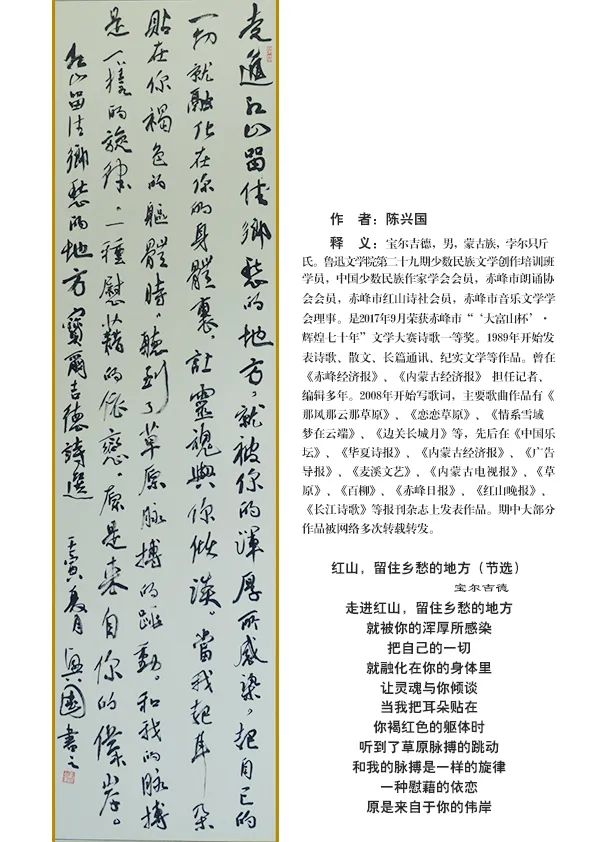 走進紅山留住鄉愁的地方，就被你的渾厚所感染，把自己的
一切就融化在你的身體裏，讓靈魂與你傾談。當我把耳朵
貼在你褐色的軀體時，聽到了草原脉搏的跳動。和我的脉搏
是一樣的旋律，一種慰藉的依戀，原是來自你的偉岸。
紅山留住鄉愁的地方 寶爾吉德詩選 壬寅夏月 興國書之
作　者：陈兴国
释　义：宝尔吉德，男，蒙古族，孛尔只斤
氏。鲁迅文学院第二十九期少数民族文学创作培训班
学员，中国少数民族作家学会会员，赤峰市朗诵协
会会员，赤峰市红山诗社会员，赤峰市音乐文学学
会理事。是2017年9月荣获赤峰市“‘大富山杯’·
辉煌七十年”文学大赛诗歌一等奖。1989年开始发
表诗歌、散文、长篇通讯、纪实文学等作品。曾在
《赤峰经济报》、《内蒙古经济报》 担任记者、
编辑多年。2008年开始写歌词，主要歌曲作品有《
那风那云那草原》、《恋恋草原》、《情系雪域
梦在云端》、《边关长城月》等，先后在《中国乐
坛》、《华夏诗报》、《内蒙古经济报》、《广告
导报》、《麦溪文艺》、《内蒙古电视报》、《草
原》、《百柳》、《赤峰日报》、《红山晚报》、
《长江诗歌》等报刊杂志上发表作品。期中大部分
作品被网络多次转载转发。
红山，留住乡愁的地方（节选）
宝尔吉德
走进红山，留住乡愁的地方
就被你的浑厚所感染
把自己的一切
就融化在你的身体里
让灵魂与你倾谈
当我把耳朵贴在
你褐红色的躯体时
听到了草原脉搏的跳动
和我的脉搏是一样的旋律
一种慰藉的依恋
原是来自于你的伟岸